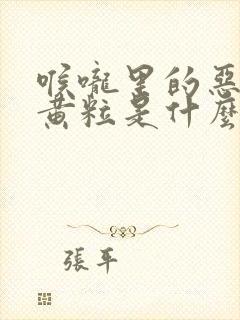 喉嚨里的惡
黃粒是什麼
張平